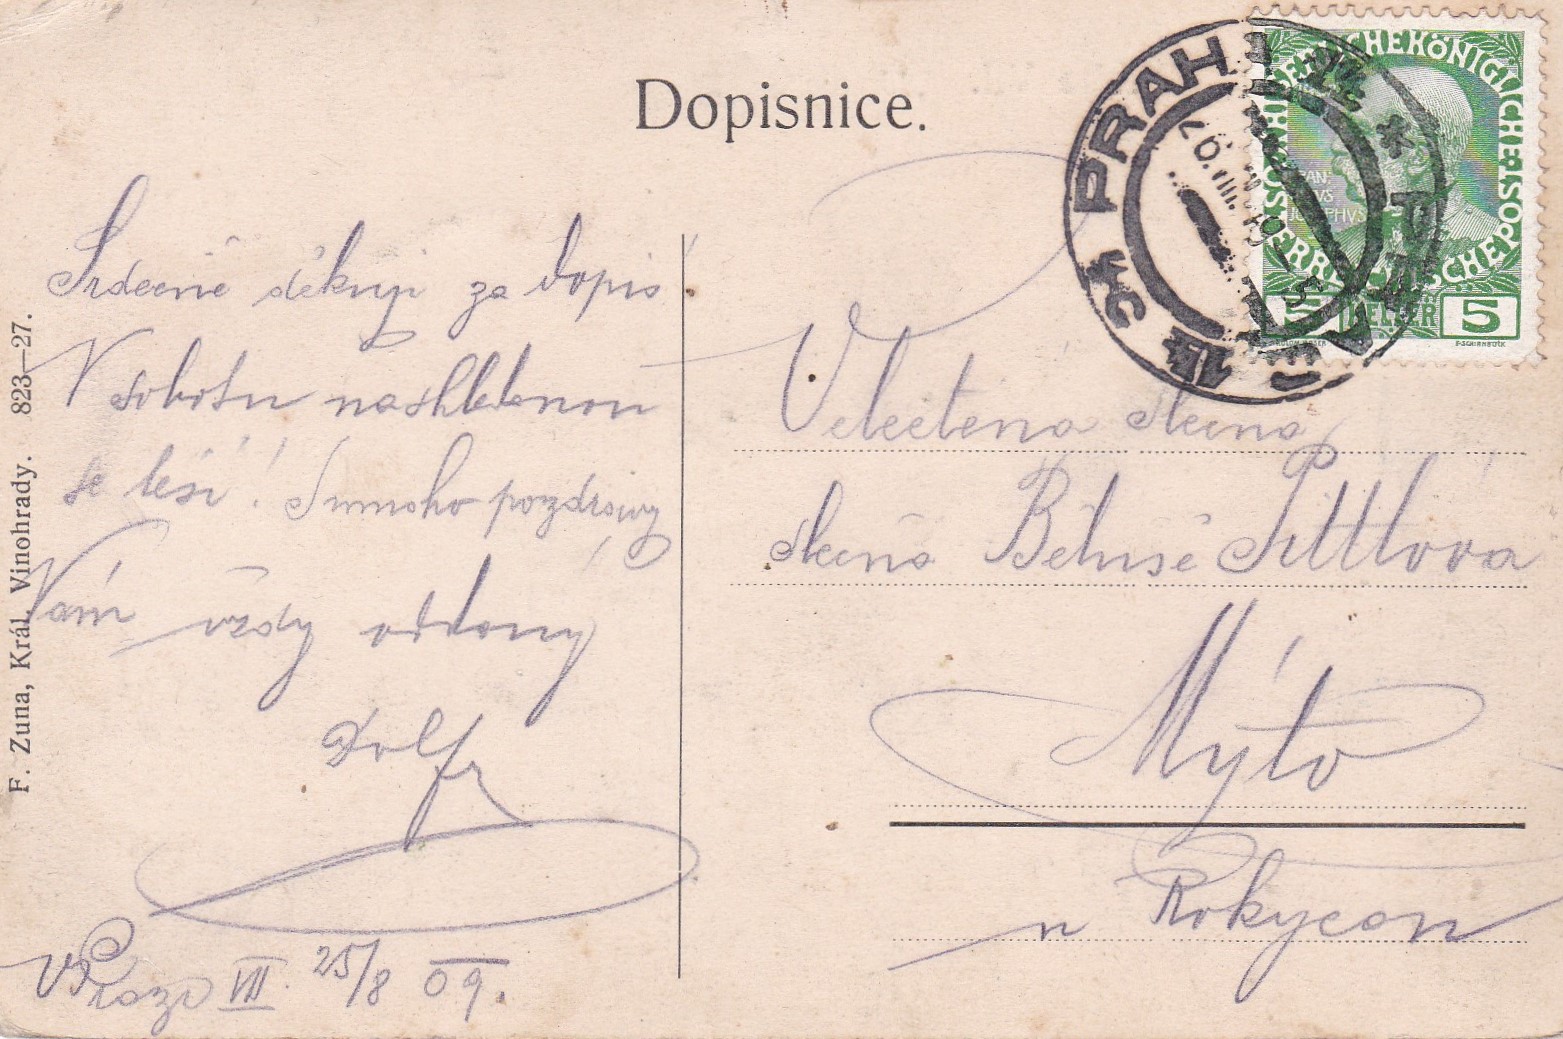 Dopisnice.
Srdečně děkuji za dopis
V sobotu nashledanou
se těší! Srnmoho pozdravy
Vám vždy oddaný
Dolfr
v Praze VII. 25/8 09.
F. Zuna, Král. Vinohrady. 823—27.
Velectěná slečna
slečna Běluše Pittlova
Mýto
u Rokycan
PRAHA
KAISERLICHE KÖNIGLICHE
ÖSTERREICHISCHE POST
5 HELLER 5